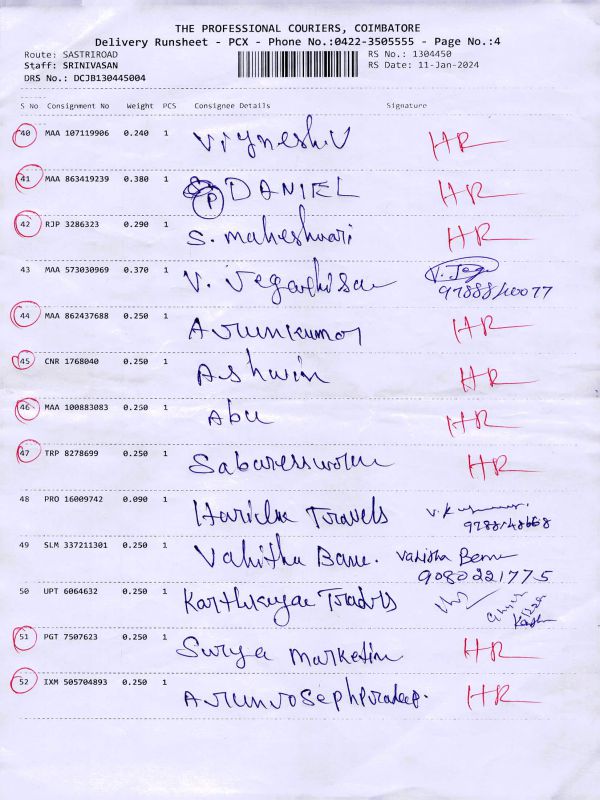 THE PROFESSIONAL COURIERS, COIMBATORE
Delivery Runsheet - PCX - Phone No.:0422-3505555 - Page No.:4
Route: SASTRIROAD RS No.: 1304450
Staff: SRINIVASAN RS Date: 11-Jan-2024
DRS No.: DCJB130445004
S No Consignment No Weight PCS Consignee Details Signature
40 MAA 107119906 0.240 1 Vignesh.V HR
41 MAA 863419239 0.380 1 P DANIEL HR
42 RJP 3286323 0.290 1 S. Maheshwari HR
43 MAA 573030969 0.370 1 V. V. Jega
44 MAA 862437688 0.250 1 Arunkumar HR
45 CNR 1768040 0.250 1 Ashwin HR
46 MAA 100883083 0.250 1 Abu HR
47 TRP 8278699 0.250 1 HR
48 PRO 16009742 0.090 1 Travels
49 SLM 337211301 0.250 1 Vahitha Banu. Vahitha Banu
9080221775
50 UPT 6064632 0.250 1
51 PGT 7507623 0.250 1 Surya HR
52 IXM 505704893 0.250 1 HR